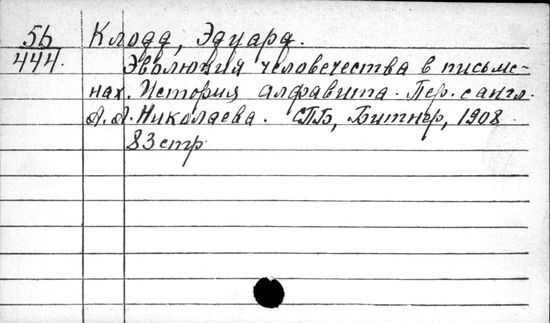 5б Клодд, Эдуард.
444. Эволюция человечества в письме-
нах. История алфавита. Пер. с англ.
А. А. Николаева. СПБ, Битнер, 1908
83 стр